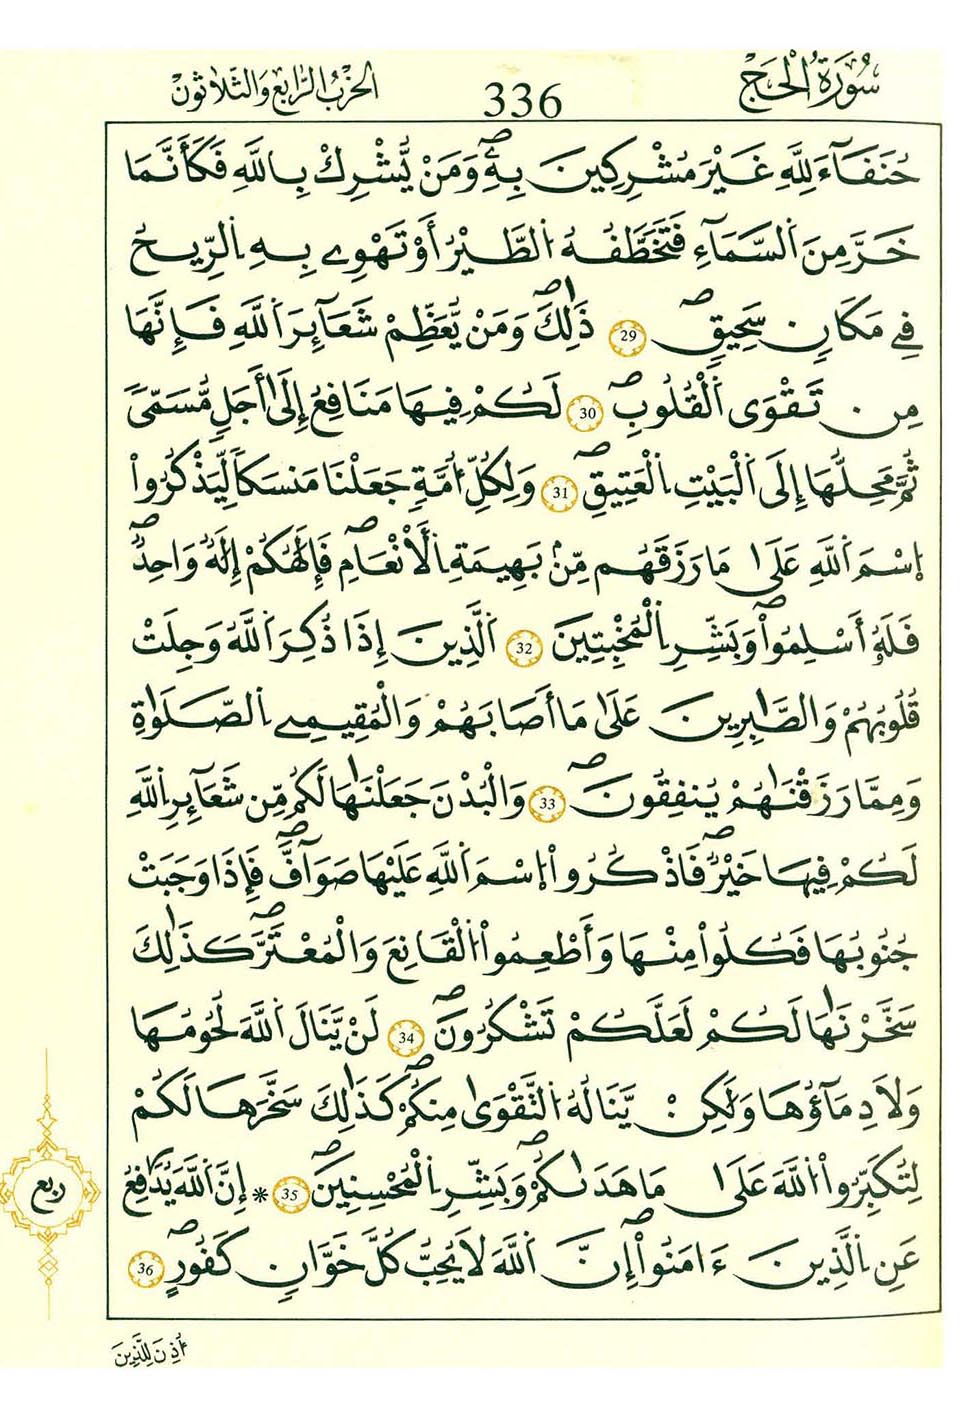 سُورَةُ الْحَجّ
336
الحِزْبُ الرَّابِعُ وَالثَّلَاثُونَ
حُنَفَآءَ لِلَّهِ غَيْرَ مُشْرِكِينَ بِهِۦۖ وَمَنْ يُّشْرِكْ بِاللَّهِ فَكَأَنَّمَا
خَرَّ مِنَ اَ۬لسَّمَآءِ فَتَخَطَّفُهُ اُ۬لطَّيْرُ أَوْ تَهْوِے بِهِ اِ۬لرِّيحُ
فِے مَكَانٖ سَحِيقٖۖ 29 ذَٰلِكَۖ وَمَنْ يُّعَظِّمْ شَعَآئِرَ اَ۬للَّهِ فَإِنَّهَا
مِن تَقْوَى اَ۬لْقُلُوبِۖ 30 لَكُمْ فِيهَا مَنَافِعُ إِلَىٰٓ أَجَلٖ مُّسَمّىٗ
ثُمَّ مَحِلُّهَا إِلَى اَ۬لْبَيْتِ اِ۬لْعَتِيقِۖ 31 وَلِكُلِّ أُمَّةٖ جَعَلْنَا مَنسَكاٗ لِّيَذْكُرُواْ
اُ۪سْمَ اَ۬للَّهِ عَلَىٰ مَا رَزَقَهُم مِّنۢ بَهِيمَةِ اِ۬لْأَنْعَٰمِۖ فَإِلَٰهُكُمْ إِلَٰهٞ وَاحِدٞۖ
فَلَهُۥ أَسْلِمُواْۖ وَبَشِّرِ اِ۬لْمُخْبِتِينَ 32 اَ۬لَّذِينَ إِذَا ذُكِرَ اَ۬للَّهُ وَجِلَتْ
قُلُوبُهُمْ وَالصَّٰبِرِينَ عَلَىٰ مَا أَصَابَهُمْ وَالْمُقِيمِے اِ۬لصَّلَوٰةِ
وَمِمَّا رَزَقْنَٰهُمْ يُنفِقُونَۖ 33 وَالْبُدْنَ جَعَلْنَٰهَا لَكُم مِّن شَعَآئِرِ اِ۬للَّهِ
لَكُمْ فِيهَا خَيْرٞۖ فَاذْكُرُواْ اُ۪سْمَ اَ۬للَّهِ عَلَيْهَا صَوَآفَّۖ فَإِذَا وَجَبَتْ
جُنُوبُهَا فَكُلُواْ مِنْهَا وَأَطْعِمُواْ اُ۬لْقَانِعَ وَالْمُعْتَرَّۖ كَذَٰلِكَ
سَخَّرْنَٰهَا لَكُمْ لَعَلَّكُمْ تَشْكُرُونَۖ 34 لَنْ يَّنَالَ اَ۬للَّهَ لُحُومُهَا
وَلَا دِمَآؤُهَا وَلَٰكِنْ يَّنَالُهُ اُ۬لتَّقْوَىٰ مِنكُمْۖ كَذَٰلِكَ سَخَّرَهَا لَكُمْ
لِتُكَبِّرُواْ اُ۬للَّهَ عَلَىٰ مَا هَدَىٰكُمْۖ وَبَشِّرِ اِ۬لْمُحْسِنِينَۖ 35 * إِنَّ اَ۬للَّهَ يُدَٰفِعُ
عَنِ اِ۬لَّذِينَ ءَامَنُواْۖ إِنَّ اَ۬للَّهَ لَا يُحِبُّ كُلَّ خَوَّانٖ كَفُورٖۖ 36
ربع
أُذِنَ لِلَّذِينَ